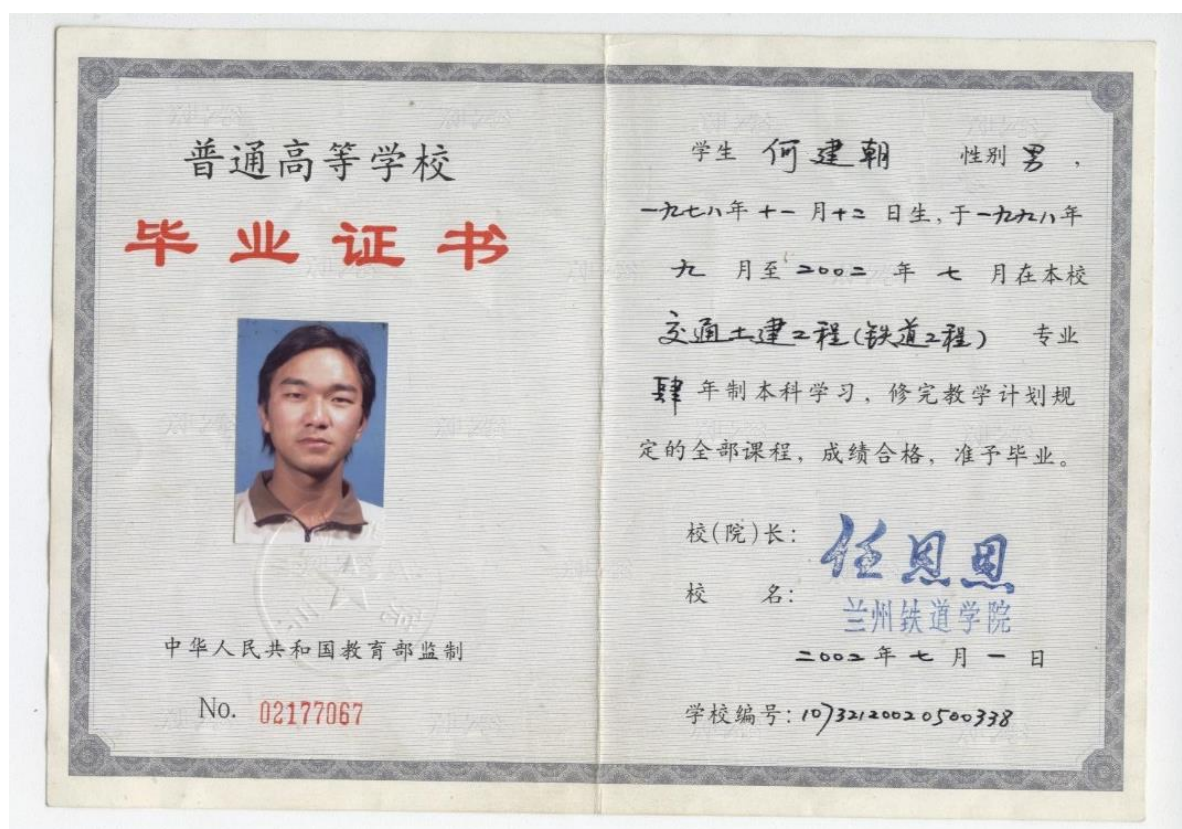 普通高等学校
毕业证书
中华人民共和国教育部监制
No. 02177067
学生 何建朝 性别 男,
一九七八年 十一 月 十二 日生,于一九九八年
九 月至 二〇〇二 年 七 月在本校
交通土建工程(铁道工程) 专业
肆 年制本科学习,修完教学计划规
定的全部课程,成绩合格,准予毕业。
校(院)长: 任恩恩
校 名: 兰州铁道学院
二〇〇二 年 七 月 一 日
学校编号: 107321200205500338